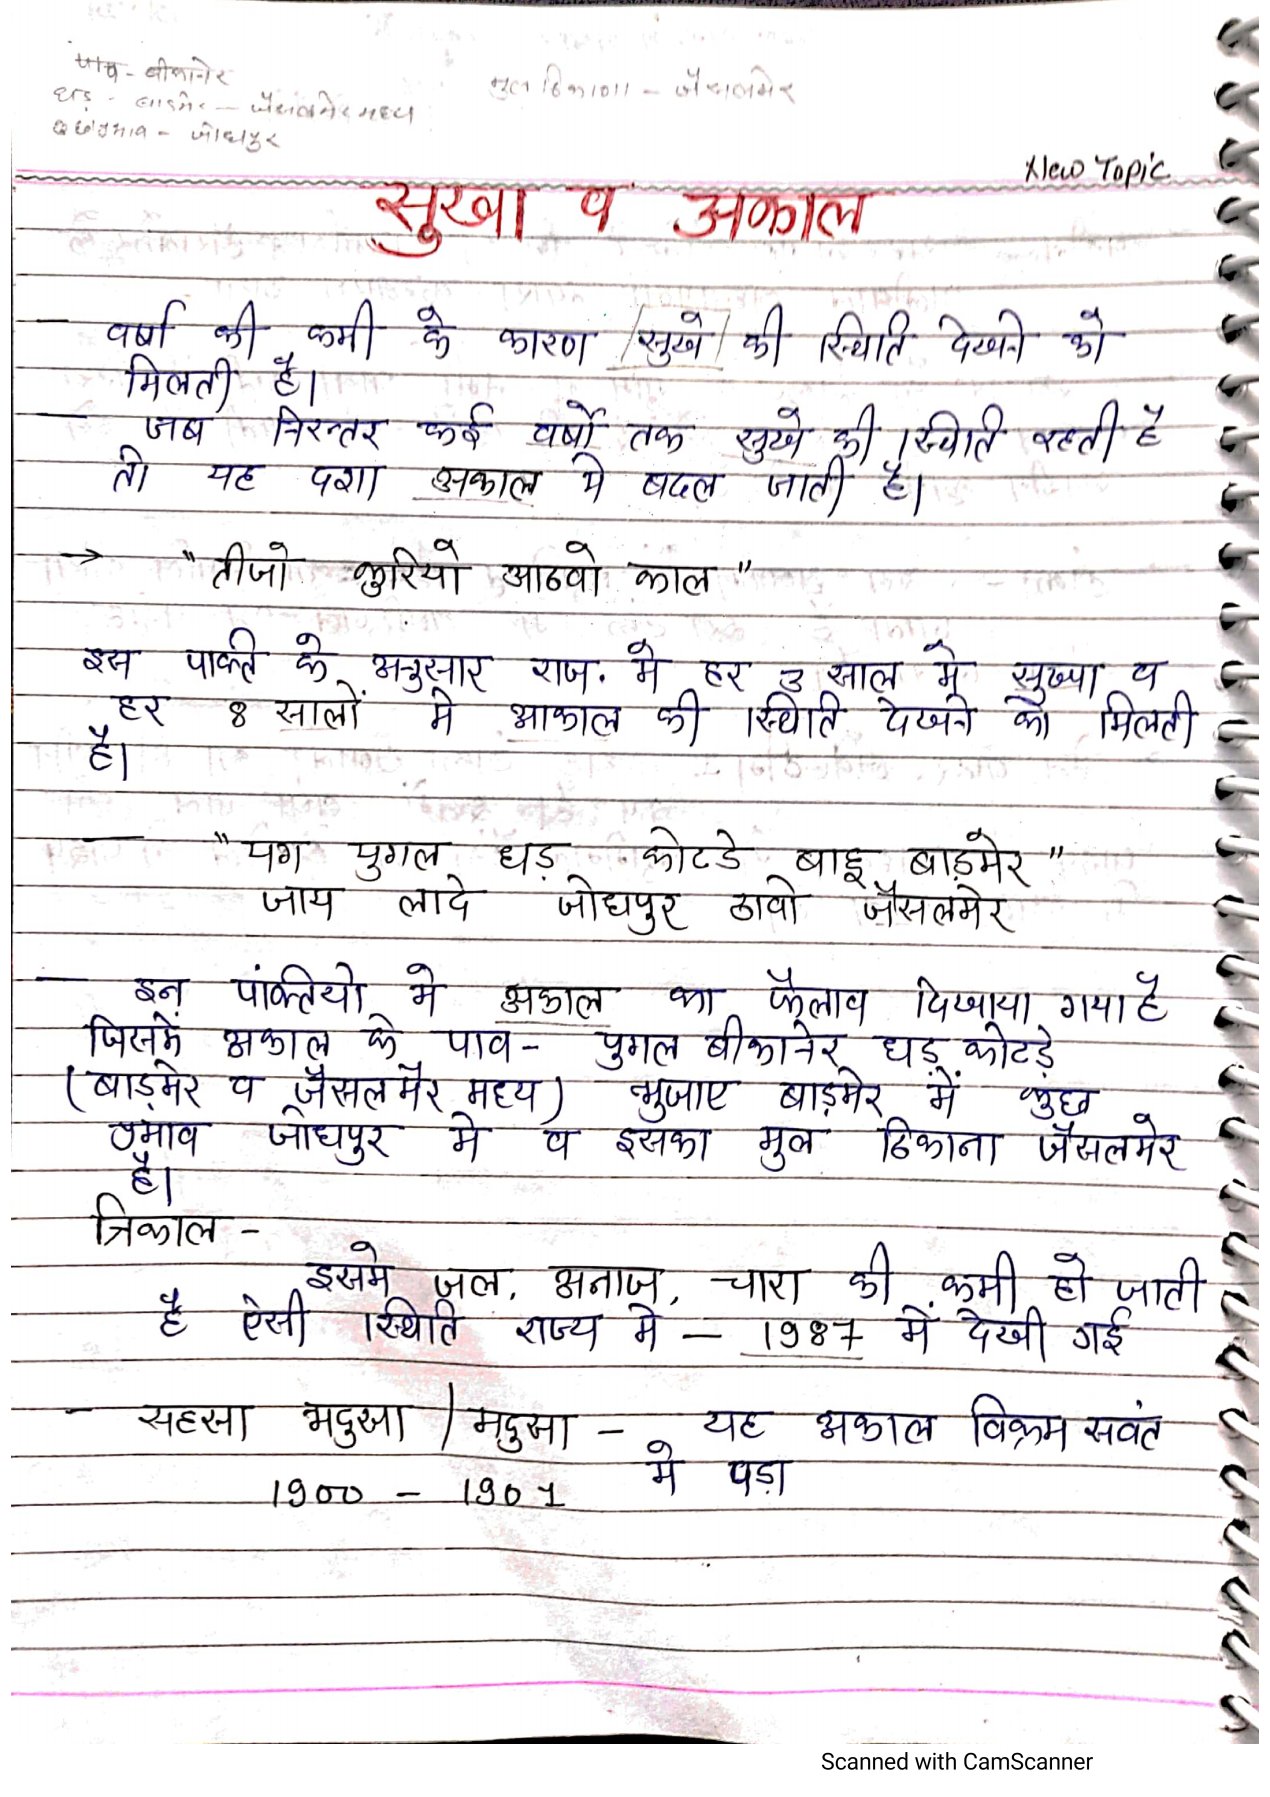 पाव - बीकानेर
मुल ठिकाणा - जैसलमेर
धड़ - बाडमेर - जैसलमेर मध्य
- जोधपुर
New Topic
सुखा व अकाल
वर्षा की कमी के कारण सुखे की स्थिति देखने को
मिलती है।
जब निरन्तर कई वर्षों तक सुखे की स्थिति रहती है
तो यह दशा अकाल मे बदल जाती है।
→ "तीजो कुरियो आठवो काल"
इस पंक्ति के अनुसार राज. मे हर 3 साल मे सुखा व
हर 8 सालों मे आकाल की स्थिति देखने को मिलती
है।
"पग पुगल धड़ कोटडे बाहू बाड़मेर"
जाय लादे जोधपुर ठावो जैसलमेर
इन पंक्तियो मे अकाल का फैलाव दिखाया गया है
जिसमें अकाल के पाव - पुगल बीकानेर धड़ कोटड़े
(बाड़मेर व जैसलमेर मध्य) भुजाए बाड़मेर में कुछ
ठमाव जोधपुर मे व इसका मुल ठिकाना जैसलमेर
है।
त्रिकाल -
इसमे जल, अनाज, चारा की कमी हो जाती
है ऐसी स्थिति राज्य मे - 1987 में देखी गई
- सहसा भदुसा / मदुसा - यह अकाल विक्रम सवंत
1900 - 1901 मे पड़ा
Scanned with CamScanner